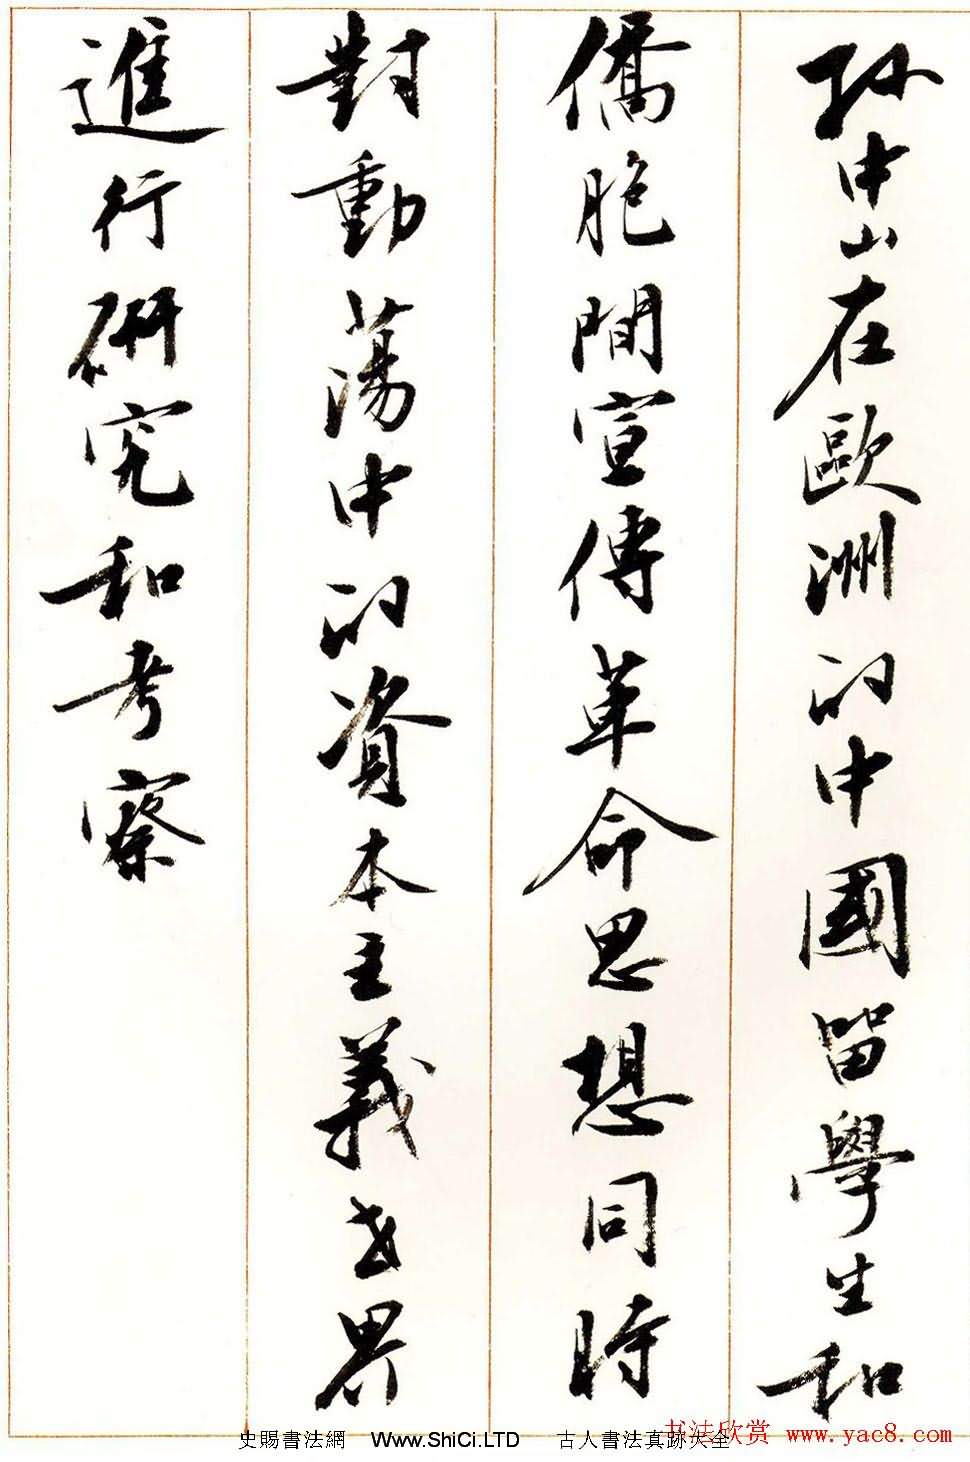 孙中山在歐洲的中國留學生和
僑胞間宣傳革命思想同時
對動蕩中的資本主義世界
進行研究和考察
史賜書法網 Www.ShiCi.LTD 古人書法真跡大全
书法欣赏 www.yac8.com